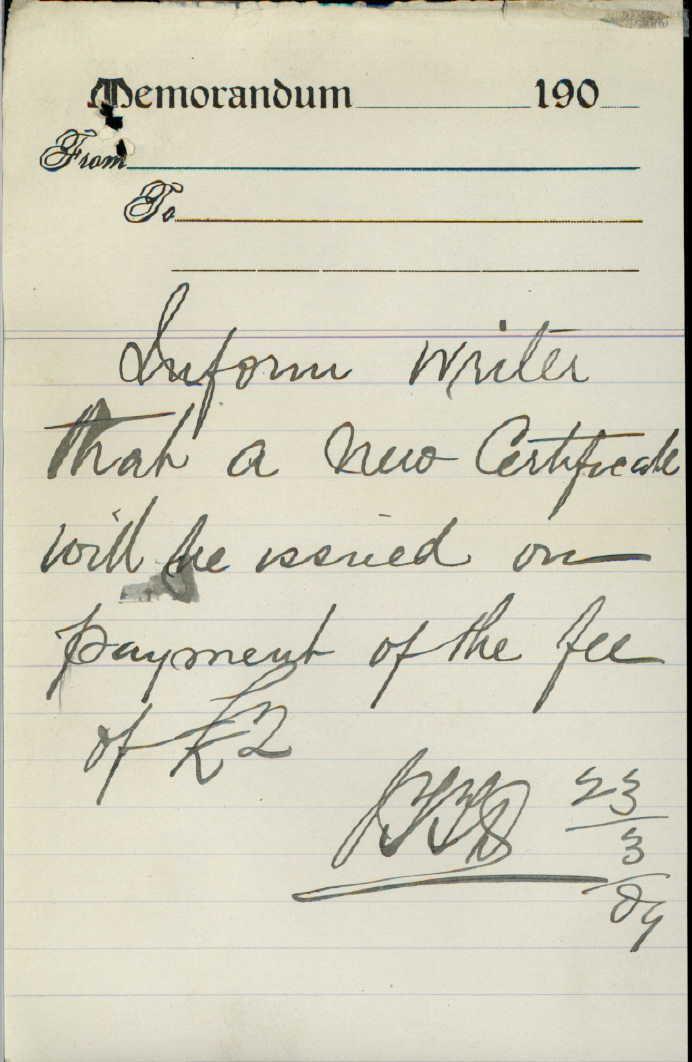 Memorandum 190
From
To
Inform writer
that a new Certificate
will be issued on
payment of the fee
of £2
23
3
09